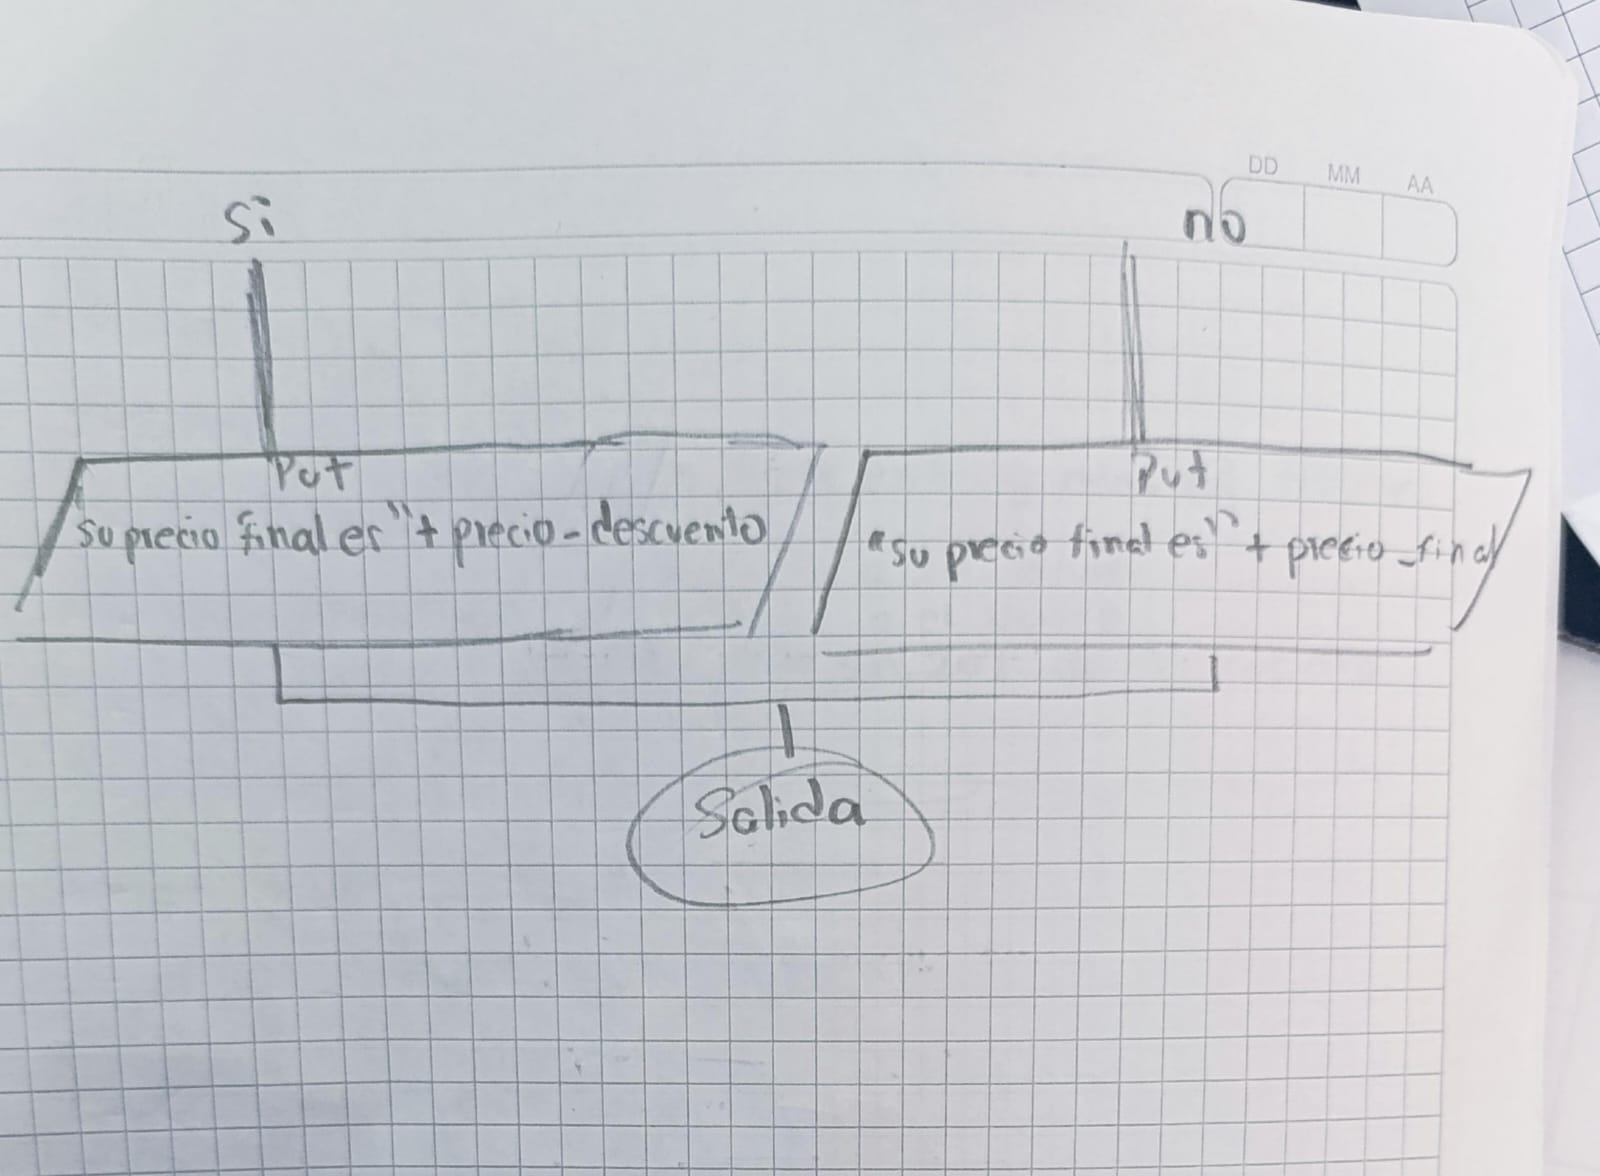 DD MM AA
Si no
Put
su precio final es" + precio-descuento
Put
"su precio final es" + precio_final
Salida